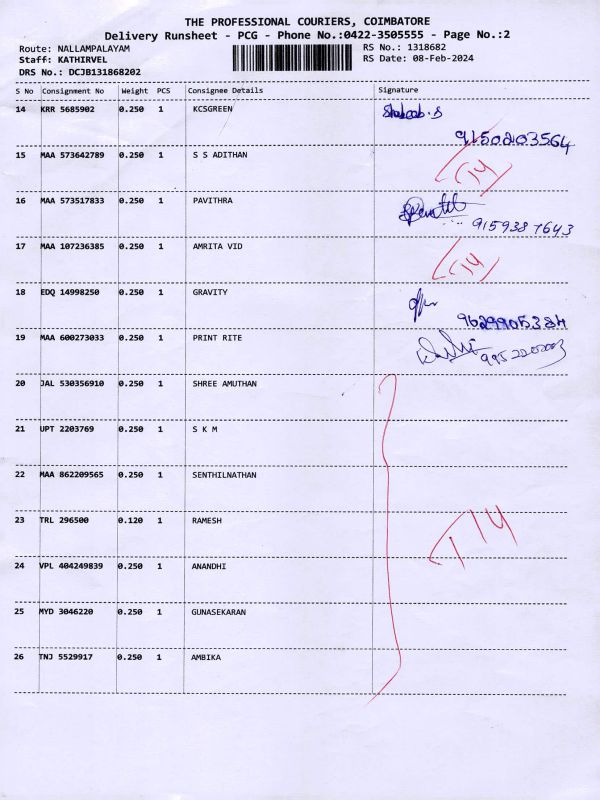 THE PROFESSIONAL COURIERS, COIMBATORE
Delivery Runsheet - PCG - Phone No.:0422-3505555 - Page No.:2
Route: NALLAMPALAYAM RS No.: 1318682
Staff: KATHIRVEL RS Date: 08-Feb-2024
DRS No.: DCJB131868202
S No Consignment No Weight PCS Consignee Details Signature
14 KRR 5685902 0.250 1 KCSGREEN
9150203564
15 MAA 573642789 0.250 1 S S ADITHAN
16 MAA 573517833 0.250 1 PAVITHRA
9159387643
17 MAA 107236385 0.250 1 AMRITA VID
18 EDQ 14998250 0.250 1 GRAVITY
9629905384
19 MAA 600273033 0.250 1 PRINT RITE
20 JAL 530356910 0.250 1 SHREE AMUTHAN
21 UPT 2203769 0.250 1 S K M
22 MAA 862209565 0.250 1 SENTHILNATHAN
23 TRL 296500 0.120 1 RAMESH
24 VPL 404249839 0.250 1 ANANDHI
25 MYD 3046220 0.250 1 GUNASEKARAN
26 TNJ 5529917 0.250 1 AMBIKA